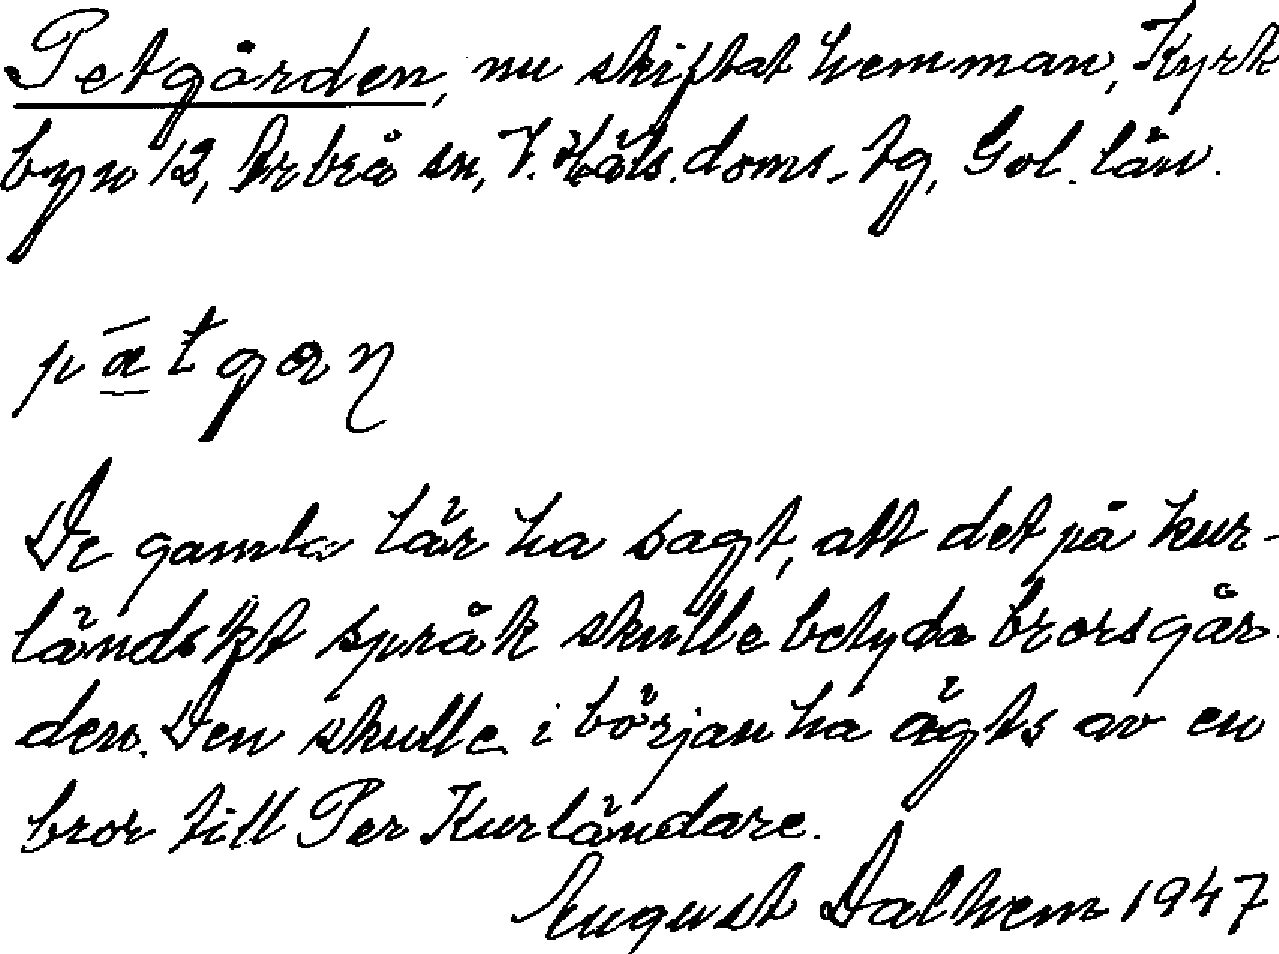 Petgården, nu skiftat hemman, Kyrk
byn 12, Arbrå sn, V. Häls. doms. tg, Gvl. län.
pǣtgαη
De gamla lär ha sagt, att det på kur-
ländskt språk skulle betyda brorsgår-
den. Den skulle i början ha ägts av en
bror till Per Kurländare.
August Dalhem 1947